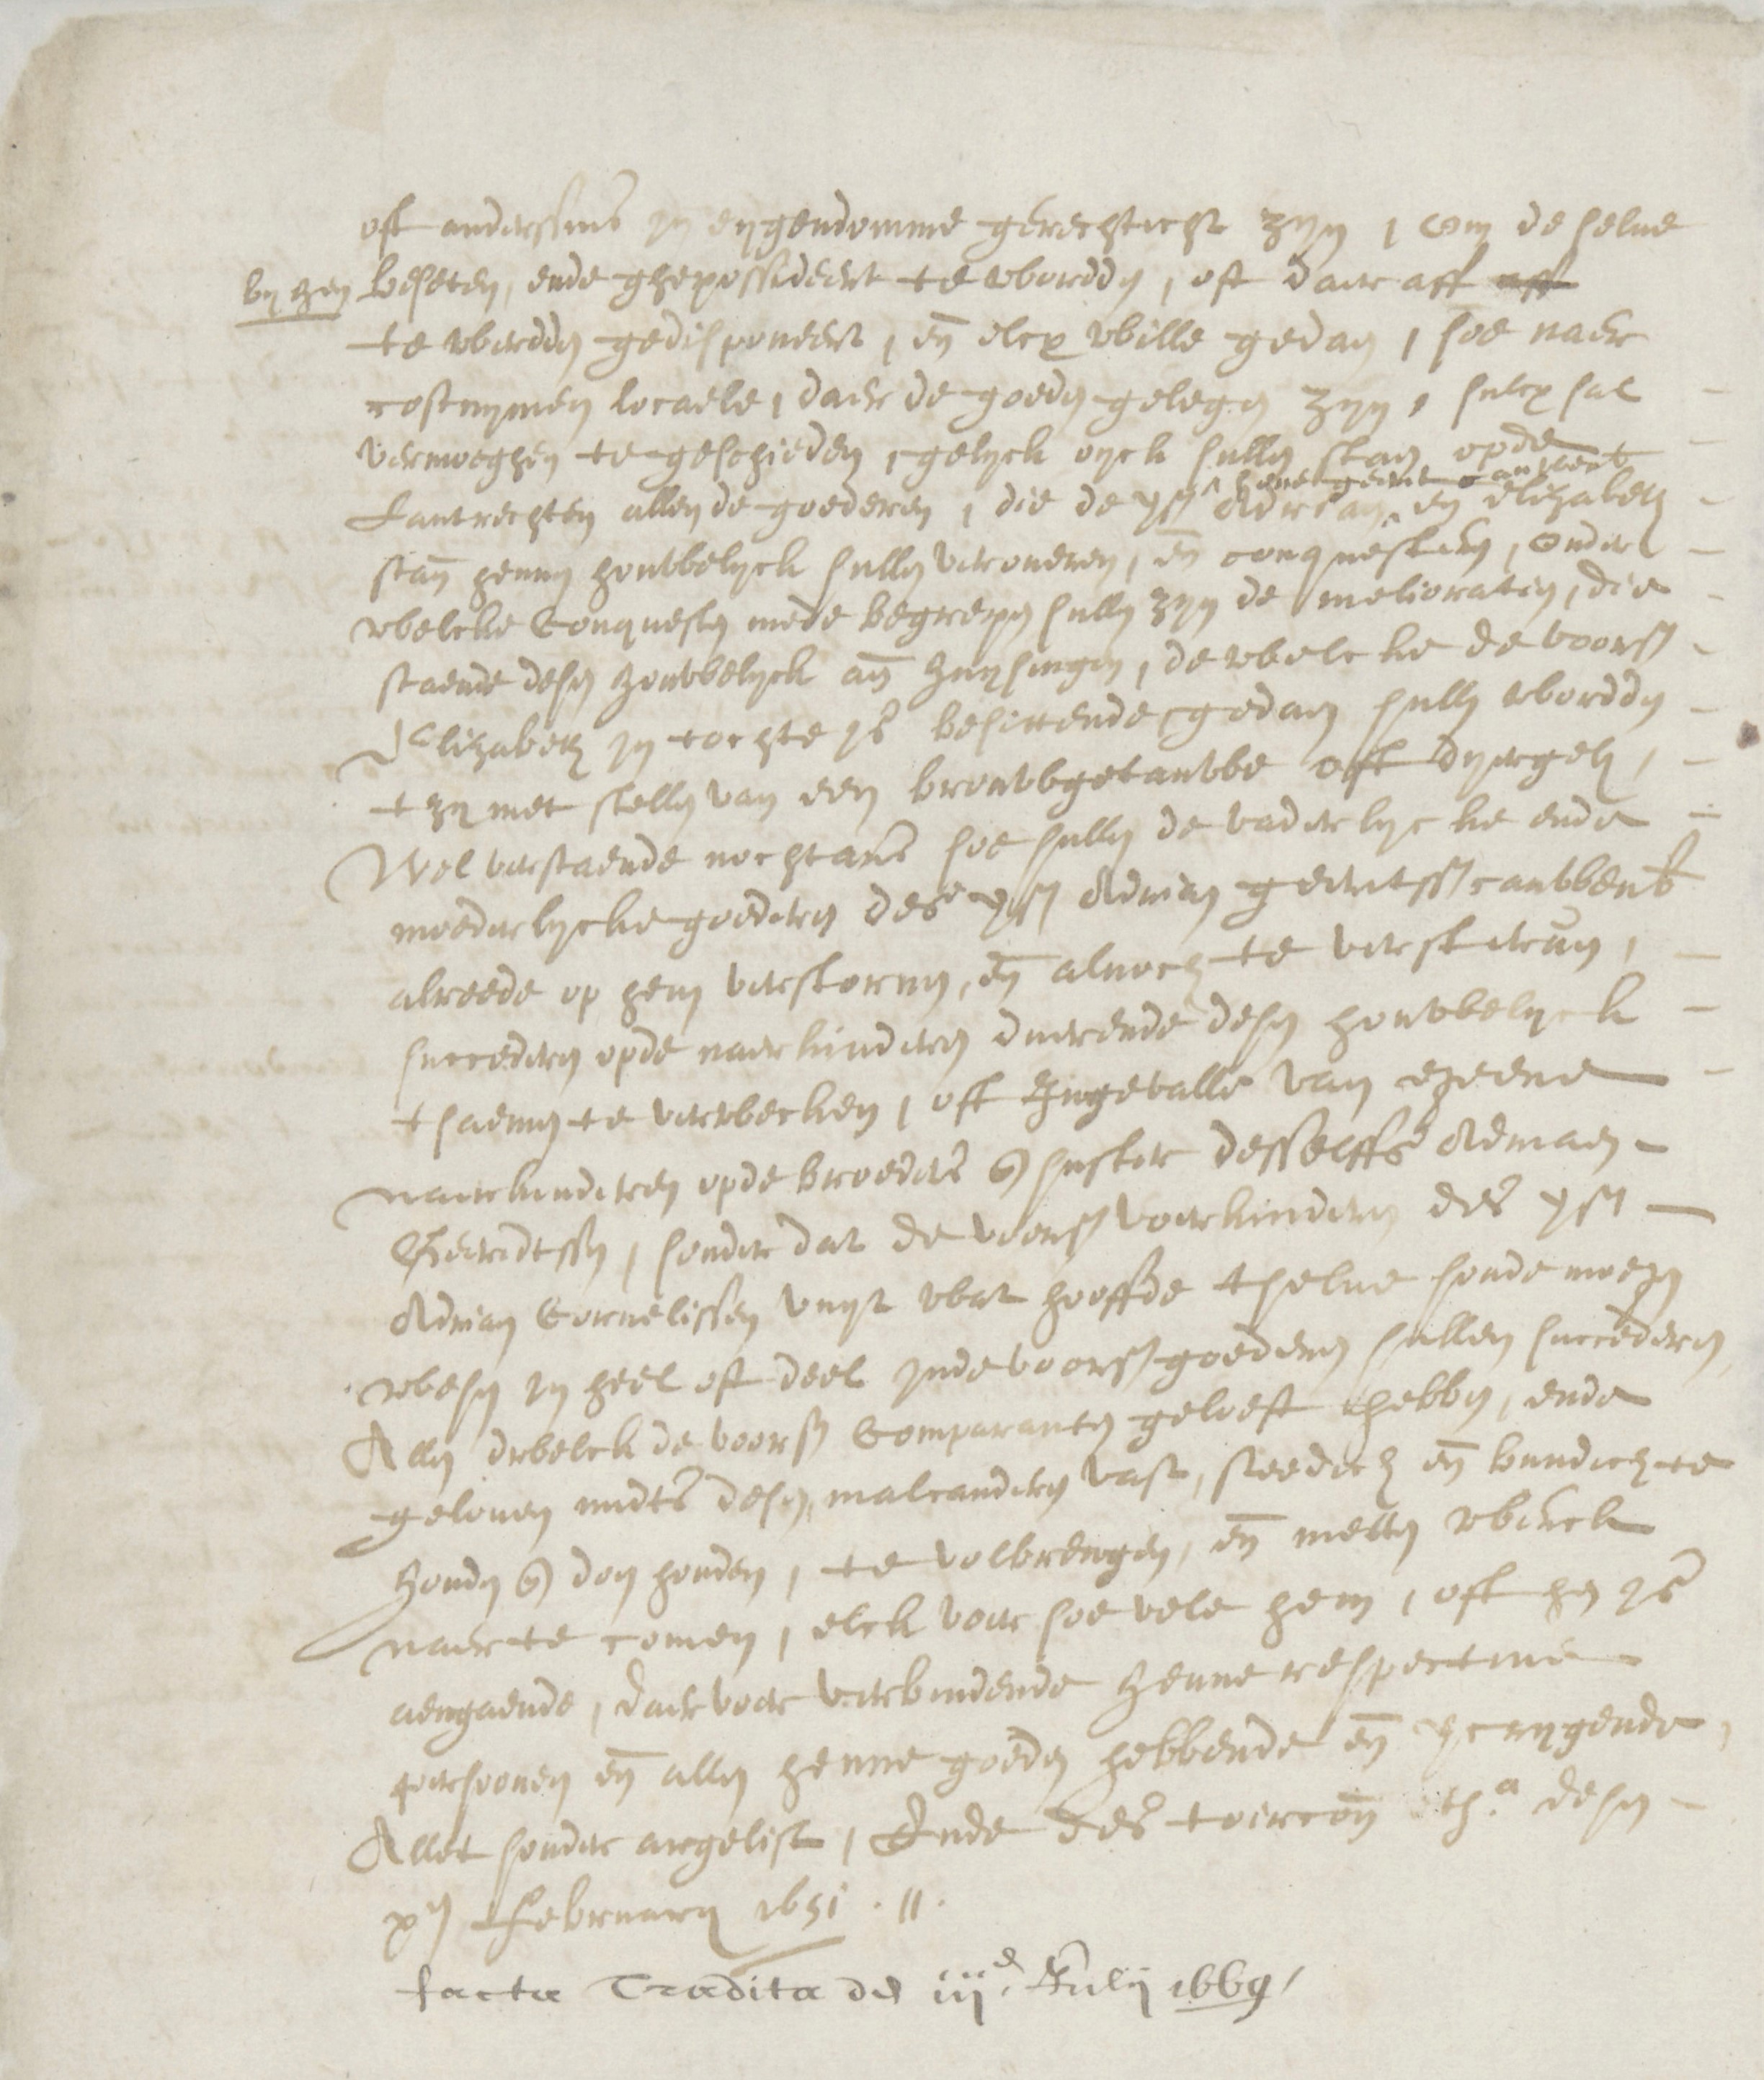 oft anderssins in eygendomme gerechticht zyn, om de selve
by hen beseten, ende ghepossideert te worden, oft daer aff aff
te werden gedisponeert, en elcx wille gedaen, soe naer
costuymen locaele, daer de goeden gelegen zyn, sulcx sal
vermoeghen te geschieden, gelyck oyck sullen staen opde
Lantrechten allen de goederen, die de vs. Adriaen en Elizabeth
staen hennen houwelyck sullen vercrueren, en conquesteren, onder
welcke Conquesten mede begrepen sullen zyn de melioratien, die
staende desen houwelyck aen huysingen, de welcke de voors.
Elizabeth in tochte is besittende gedaen sullen worden
tzy met stellen van een brouwgetauwe oft dyergel.,
Wel verstaende nochtans soe sullen de vaderlycke ende
moederlycke goederen des vs. Adriaen Geeritss Cauwbents
alreede op hem verstorven, en alnoch te versterven,
succederen opde naerkinderen duerende desen houwelyck
tsaemen te verwecken, oft Ingevalle van egeene
naerkinderen opde broeders en suster desselffs Adriaen
Geeridtssen, sonder dat de voors. voerkinderen des vs.
Adriaen Cornelissen vuyt wat hooffde tselve soude moegen
wesen in heel oft deel inde voors. goederen sullen succederen,
Allen dwelck de voors. Comparanten geloeft hebben, ende
geloven midts desen, malcanderen vast, stedich en bundich te
houden en doen houden, te volbrengen, en metten werck
naer te comen, elck voer soe vele hem, oft hen is
aengaende, daer voer verbindende henne respective
persoonen en allen henne goeden hebbende en vercrygende,
Allet sonder argelist, Ende des toircon. tha. desen
xen February 1651 . //.
facta Tradita den iiid. July 1669,